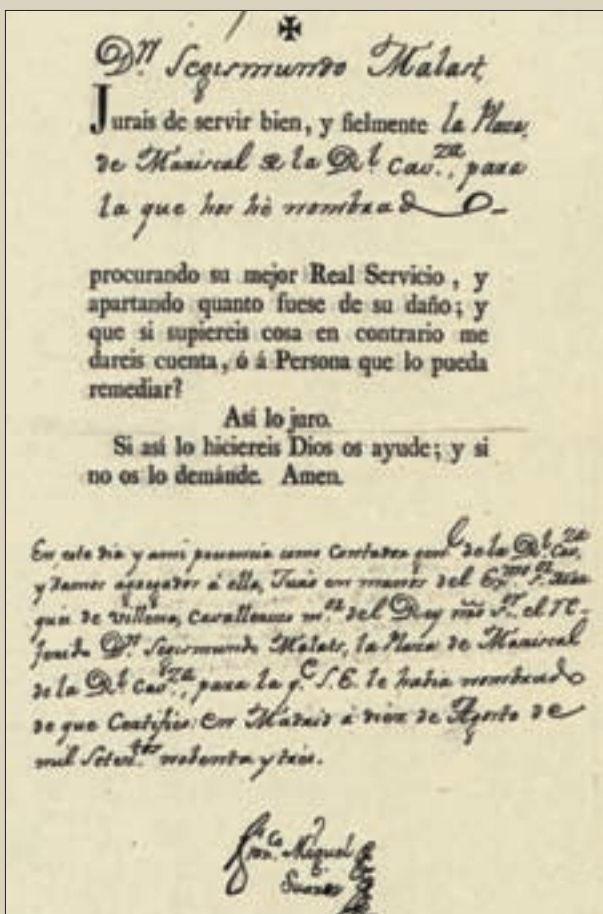 ✠
D.ⁿ Segismundo Malast,
Jurais de servir bien, y fielmente la Plaza,
de Mariscal de la R.l Cav.za, para
la que hos hè nombrado
procurando su mejor Real Servicio, y
apartando quanto fuese de su daño; y
que si supiereis cosa en contrario me
dareis cuenta, ó á Persona que lo pueda
remediar?
Así lo juro.
Si así lo hiciereis Dios os ayude; y si
no os lo demánde. Amen.
En este dia y ami presencia como Contador gen.l de la R.l Cav.za
y demas agregados á ella, Juró en manos del Ex.mo S.r Mar
ques de Villena, Cavallerizo m.or del Rey nño S.r el re-
ferido D.n Segismundo Malats, la Plaza de Mariscal
de la R.l Cav.za, para la q.e S.E. le habia nombrado
de que Certifico: En Madrid á diez de Agosto de
mil Setec.tos nobenta y tres.
Fran.co Miguel
Suarez